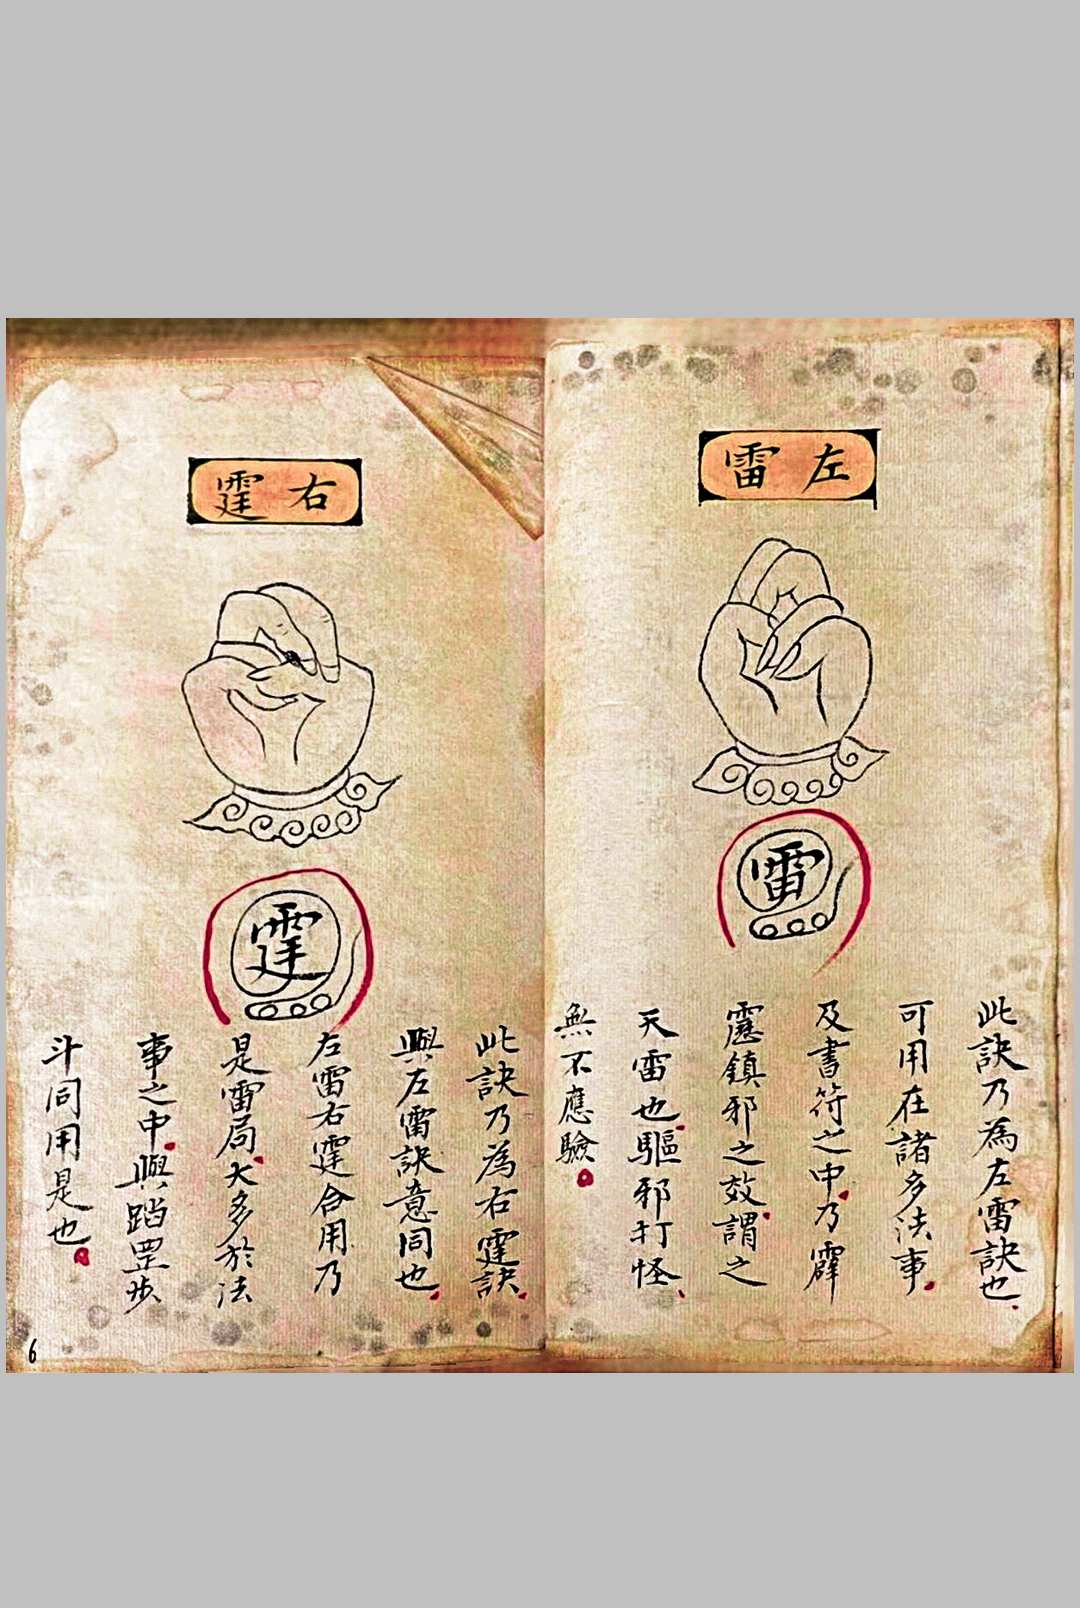 左雷
雷
此訣乃為左雷訣也、
可用在諸多法事、
及書符之中、乃霹
靂鎮邪之效、謂之
天雷也、驅邪打怪、
無不應驗。
右霆
霆
此訣乃為右霆訣、
與左雷訣意同也、
左雷右霆合用乃
是雷局、大多於法
事之中、與踏罡步
斗同用是也。
6